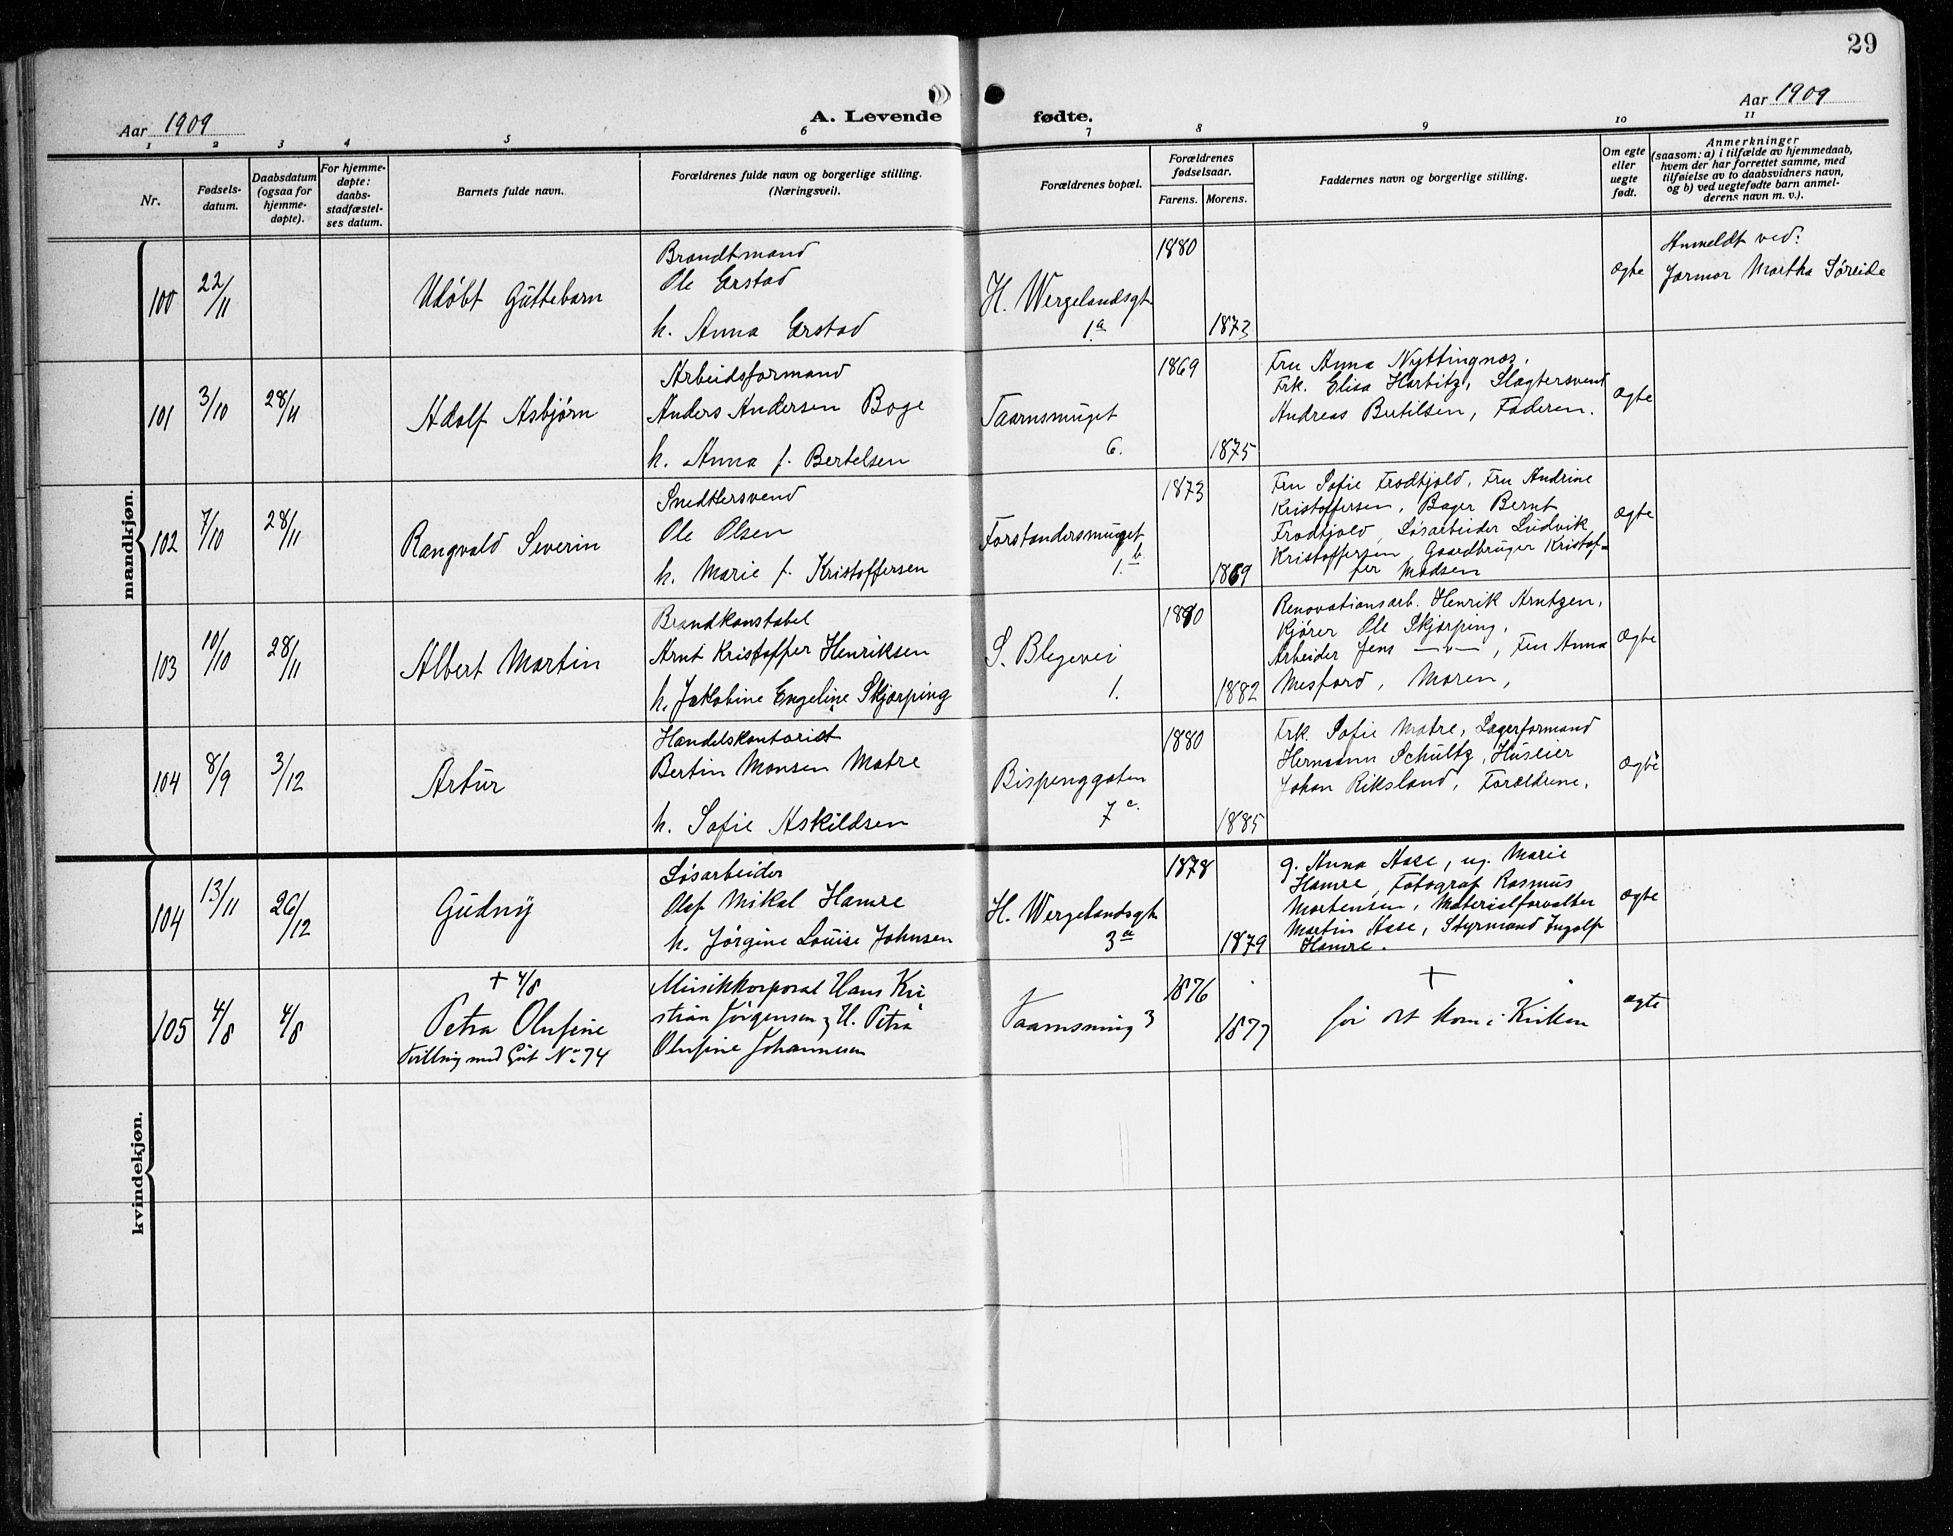 29
Aar 1909
A. Levende
fødte.
Aar 1909
1 2 3 4 5 6 7 8 9 10 11
Nr.
Fødsels-
datum.
Daabsdatum
(ogsaa for
hjemme-
døpte).
For hjemme-
døpte:
daabs-
stadfæstel-
ses datum.
Barnets fulde navn.
Forældrenes fulde navn og borgerlige stilling.
(Næringsvei).
Forældrenes bopæl.
Forældrenes
fødselsaar.
Farens. Morens.
Faddernes navn og borgerlige stilling.
Om egte
eller
uegte
født.
Anmerkninger
(saasom: a) i tilfælde av hjemmedaab,
hvem der har forrettet samme, med
tilføielse av to daabsvidners navn,
og b) ved uegtefødte barn anmel-
derens navn m. v.).
mandkjøn.
100
22/11
Udøbt Guttebarn
Brandtmand
Ole Erstad
h. Anna Erstad
H. Wergelandsgt.
1a
1880
1873
ægte
Anmeldt ved:
Jormor Martha Søreide
101
3/10
28/11
Adolf Asbjørn
Arbeidsformand
Anders Andersen Boge
h. Anna f. Bertelsen
Taarnsmuget
6.
1869
1875
Fru Anna Nyttingnes,
Frk. Elisa Harbitz, Slagtersvend
Andreas Bertilsen, Faderen.
ægte
102
7/10
28/11
Rangvald Severin
Snedkersvend
Ole Olsen
h. Marie f. Kristoffersen
Forstandersmuget
1.b
1873
1869
Fru Sofie Frodtjold, Fru Andrine
Kristoffersen, Bager Bernt
Frodtjold, Løsarbeider Ludvik
Kristoffersen, Gaardbruger Kristof-
fer Madsen
ægte
103
10/10
28/11
Albert Martin
Brandkonstabel
Arnt Kristoffer Henriksen
h. Jakobine Engeline Skjørping
S. Blegevei
1.
1880
1882
Renovationsarb. Henrik Arntzen,
Kjører Ole Skjørping,
Arbeider Jens —"—, Fru Anna
Mesford, Moren,
ægte
104
8/9
3/12
Artur
Handelskontorist
Bertin Monsen Matre
h. Sofie Askildsen
Bispenggaten
7c.
1880
1885
Frk. Sofie Matre, Lagerformand
Hermann Schultz, Huseier
Johan Riksland, Forældrene,
ægte
kvindekjøn.
104
13/11
26/12
Gudny
Løsarbeider
Olaf Mikal Hamre
h. Jørgine Louise Johnsen
H. Wergelandsgt.
3a
1878
1879
g. Anna Aase, ug. Marie
Hamre, Fotograf Rasmus
Mortensen, Materialforvalter
Martin Aase, Styrmand Ingolf
Hamre.
ægte
105
4/8
4/8
+ 4/8
Petra Olufine
Tvilling med Gut No 74
Musikkorporal Hans Kri
stian Jørgensen & H. Petra
Olufine Johannesen
Taarnsmug 3
1876
1877
+
før det kom i Kirken
ægte